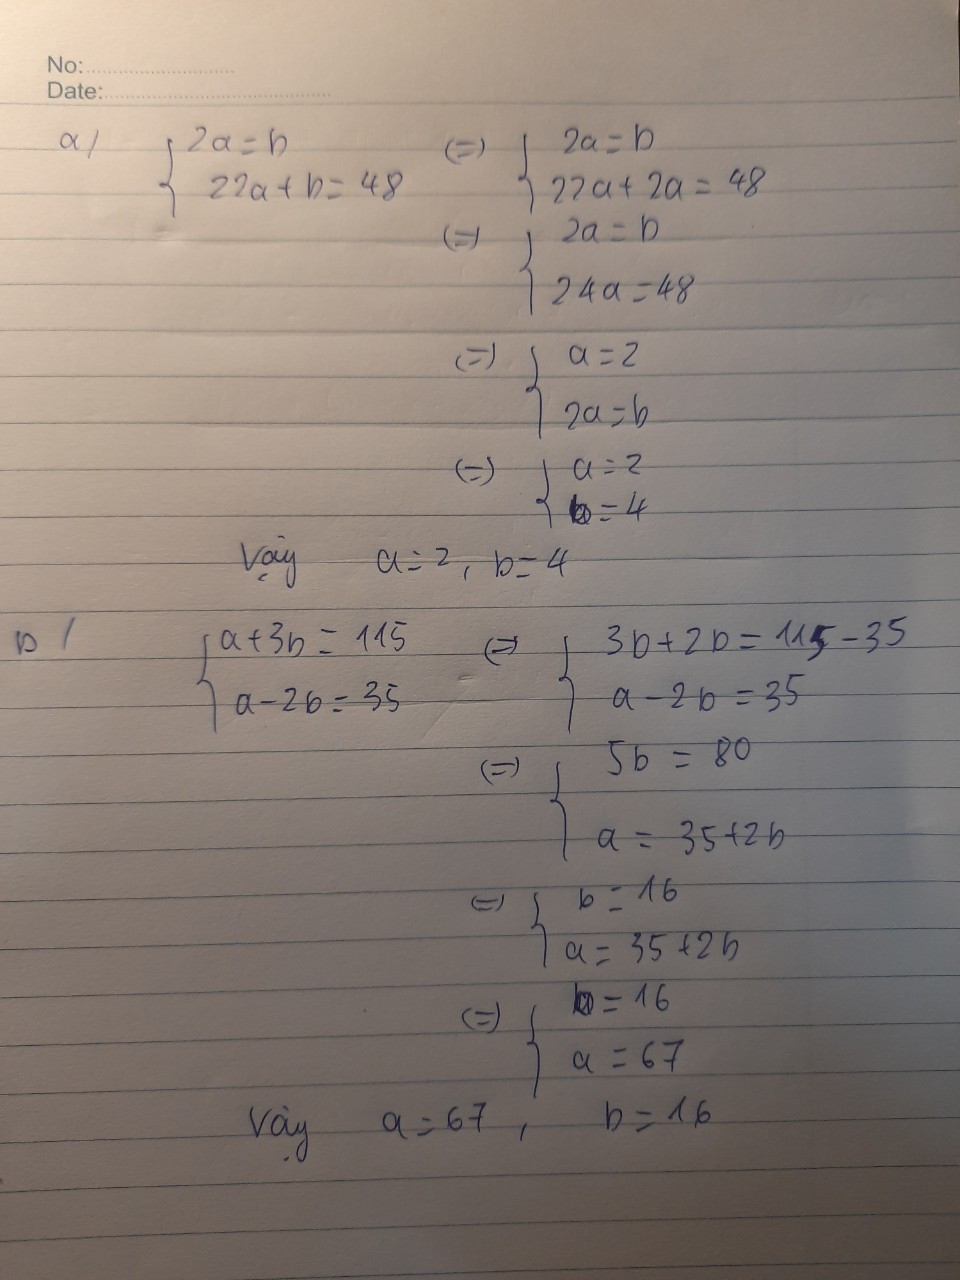 No:
Date:
a/ { 2a = b (=) { 2a = b
22a + b = 48 22a + 2a = 48
(=) { 2a = b
24a = 48
(=) { a = 2
2a = b
(=) { a = 2
b = 4
Vậy a = 2, b = 4
b/ { a + 3b = 115 (=) { 3b + 2b = 115 - 35
a - 2b = 35 a - 2b = 35
(=) { 5b = 80
a = 35 + 2b
(=) { b = 16
a = 35 + 2b
(=) { b = 16
a = 67
Vậy a = 67, b = 16